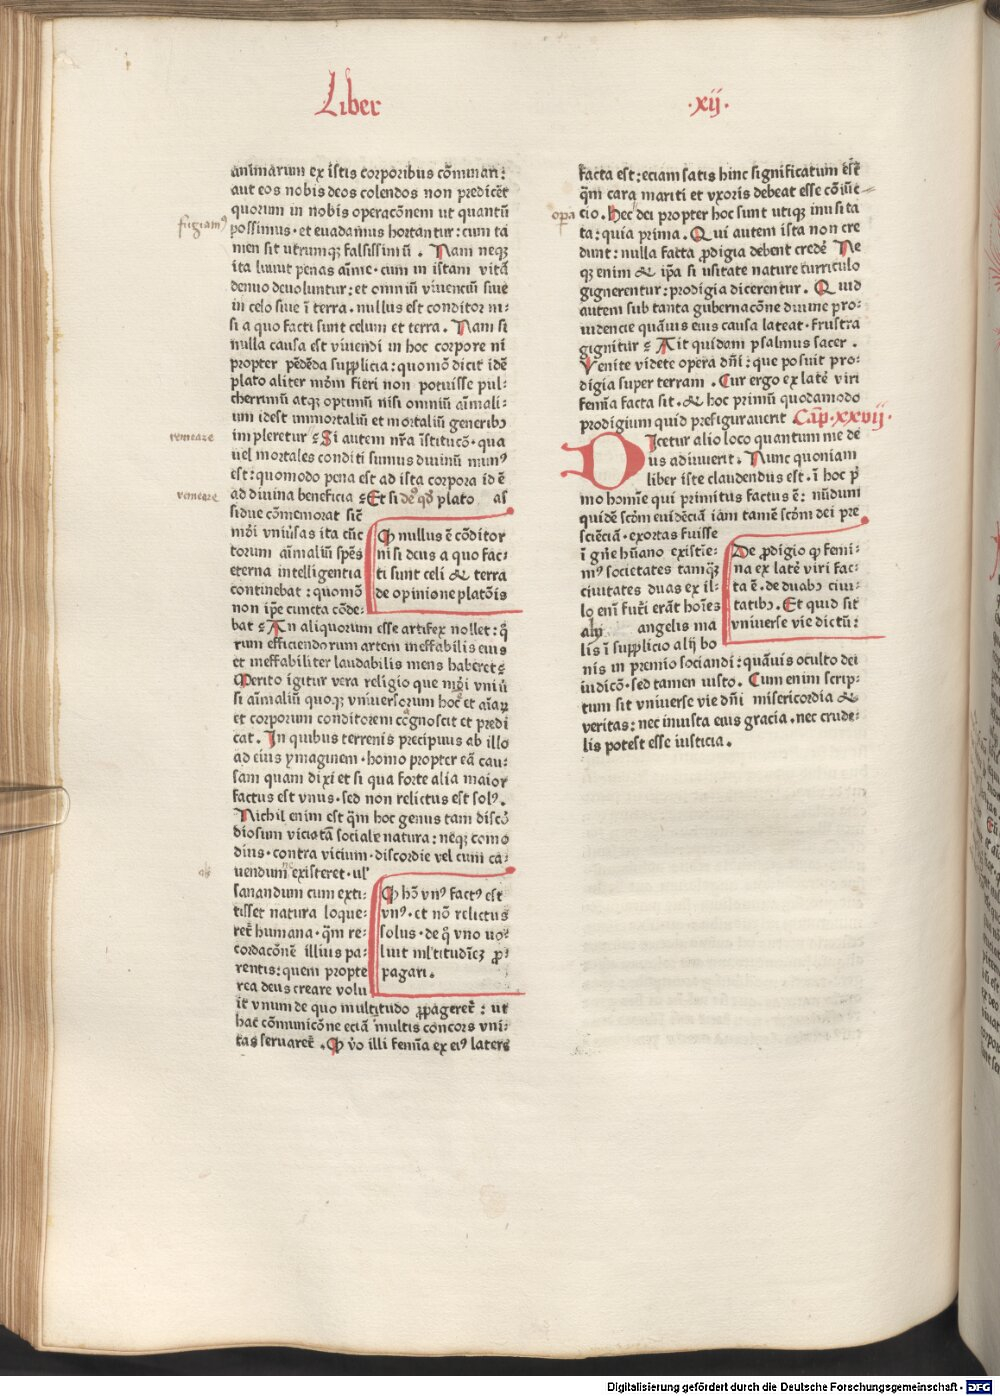 Liber
.xij.
animarum ex istis corporibus cõminari:
aut eos nobis deos colendos non predicẽt
quorum in nobis operacõnem ut quantũ
fugiamꝰ
possimus · et euadamus hortantur: cum tã
men sit utrumqꝫ falsissimũ . Nam neqꝫ
ita luunt penas aĩme · cum in istam vitã
denuo deuoluntur: et omniũ viuenciũ siue
in celo siue ĩ terra . nullus est conditor ni⸗
si a quo facti sunt celum et terra . Nam si
nulla causa est viuendi in hoc corpore ni
propter pẽdẽda supplicia: quomõ dicit idẽ
plato aliter mõm fieri non potuisse pul⸗
cherrimũ atqꝫ optimũ nisi omniũ aĩmali⸗
um idest immortaliũ et mortaliũ generibꝫ
remeare
impleretur ⁊ Si autem nr̃a ĩstitucõ · qua
uel mortales conditi sumus diuinũ munꝰ
est: quomodo pena est ad ista corpora id ẽ
remeare
ad diuina beneficia ⁊ Et si deꝰ qđ plato as
sidue cõmemorat sic̃
mõi vniũsas ita cũc
torum aĩmaliũ sp̃es
eterna intelligentia
continebat: quomõ
non ip̃e cuncta cõde⸗
ꝙ nullus ẽ cõditor
nisi deus a quo fac⸗
ti sunt celi & terra
de opinione platõis
bat ⁊ An aliquorum esse artifex nollet: q̃
rum efficiendorum artem ineffabilis eius
et ineffabiliter laudabilis mens haberet ⁊
Merito igitur vera religio que mõi vniũ
si aĩmaliũ quoqꝫ vniuersorum hoc̃ et aĩaꝝ
et corporum conditorem cognoscit et predi
cat . In quibus terrenis precipuus ab illo
ad eius ymaginem · homo propter eã cau⸗
sam quam dixi et si qua forte alia maior
factus est vnus · sed non relictus est solꝰ .
Nichil enim est q̃m hoc genus tam discõ
diosum viciatã sociale natura: neqꝫ como
dius · contra vicium · discordie vel cum ca⸗
uendum ne existeret · ul̃
sanandum cum exti⸗
tisset natura loque⸗
ret̃ humana · q̃m re⸗
cordacõnẽ illius pa⸗
rentis: quem propte
rea deus creare volu
ꝙ hõ vnꝰ factꝰ est
vnꝰ · et nõ relictus
solus · de q̃ vno uo⸗
luit ml̃titudiẽꝫ ꝓ⸗
pagari .
it vnum de quo multitudo ꝓpageret̃ : ut
hac cõmunicõne eciã ĩ multis concors vni⸗
tas seruaret̃ . ꝙ ṽo illi femĩa ex eiꝰ latere
facta est: eciam satis hinc significatum est̃
q̃m cara mariti et vxoris debeat esse cõiũc̃
opa
cio . Hec dei propter hoc sunt utiqꝫ inusita
ta: quia prima . Qui autem ista non cre
dunt: nulla facta ꝓdigia debent credẽ Ne
qꝫ enim & ip̃a si usitate nature curriculo
gignerentur: prodigia dicerentur . Quid
autem sub tanta gubernacõne diuine pro⸗
uidencie quãuis eius causa lateat · frustra
gignitur ⁊ Ait quidam psalmus sacer .
Venite videte opera dñi: que posuit pro⸗
digia super terram . Cur ergo ex latẽ viri
femĩa facta sit . & hoc primũ quodamodo
prodigium quid prefigurauerit Cap̃ · xxvij .
DIcetur alio loco quantum me de
us adiuuerit . Nunc quoniam
liber iste claudendus est . ĩ hoc pͥ
mo homĩe qui primitus factus ẽ: nũdum
quidẽ scđm euidẽciã iam tamẽ scđm dei pre
sciẽciã · exortas fuisse
ĩ gñe hũano existĩe⸗
mꝰ societates tamq̃ꝫ
ciuitates duas ex il⸗
lo enĩ fut̃i erãt hoĩes
alij angelis ma
lis ĩ supplicio alij bo
De ꝓdigio ꝙ femi⸗
na ex latẽ viri fac⸗
ta ẽ . de duabꝫ ciui⸗
tatibꝫ . Et quid sit
vniuerse vie dictũ:
nis in premio sociandi: quãuis oculto dei
iudicõ · sed tamen iusto . Cum enim scrip⸗
tum sit vniuerse vie dñi misericordia &
veritas: nec iniusta eius gracia . nec crude⸗
lis potest esse iusticia .
Digitalisierung gefördert durch die Deutsche Forschungsgemeinschaft - DFG